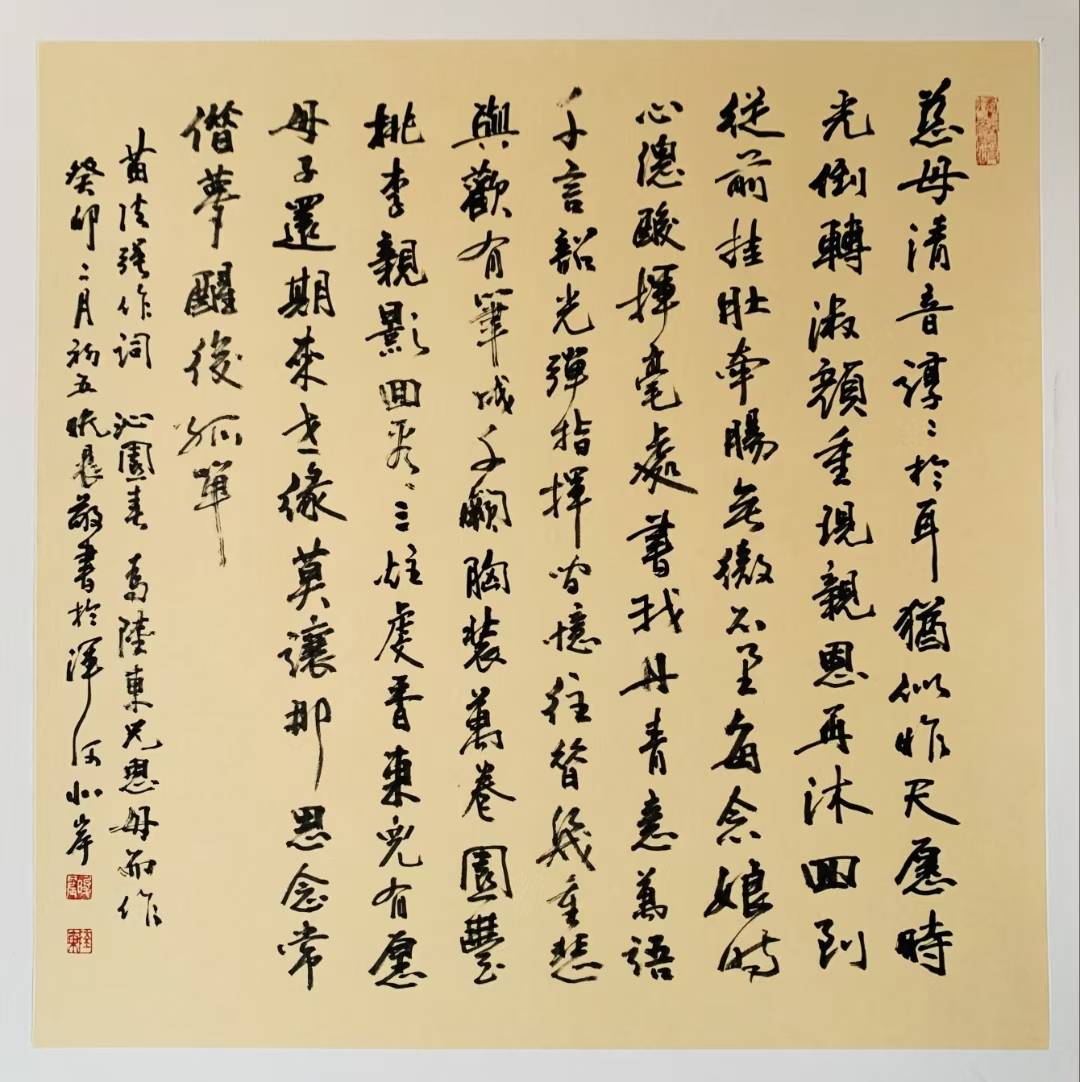 慈母清音諄〻於耳猶似昨天愿時
光倒轉淑顏重現親恩再沐回到
從前挂肚牽腸無微不至每念娘時
心總酸揮毫處書我丹青意萬語
千言韶光彈指揮間憶往昔幾重悲
與歡有筆成千胸裝萬卷園豐
桃李親影回三炷虔香東兒有愿
母子還期來世緣莫讓那思念常
偕夢醒後孤單
苗作詞 沁園春 為陸東兄思母而作
癸卯二月初五晨敬書於渾河北岸